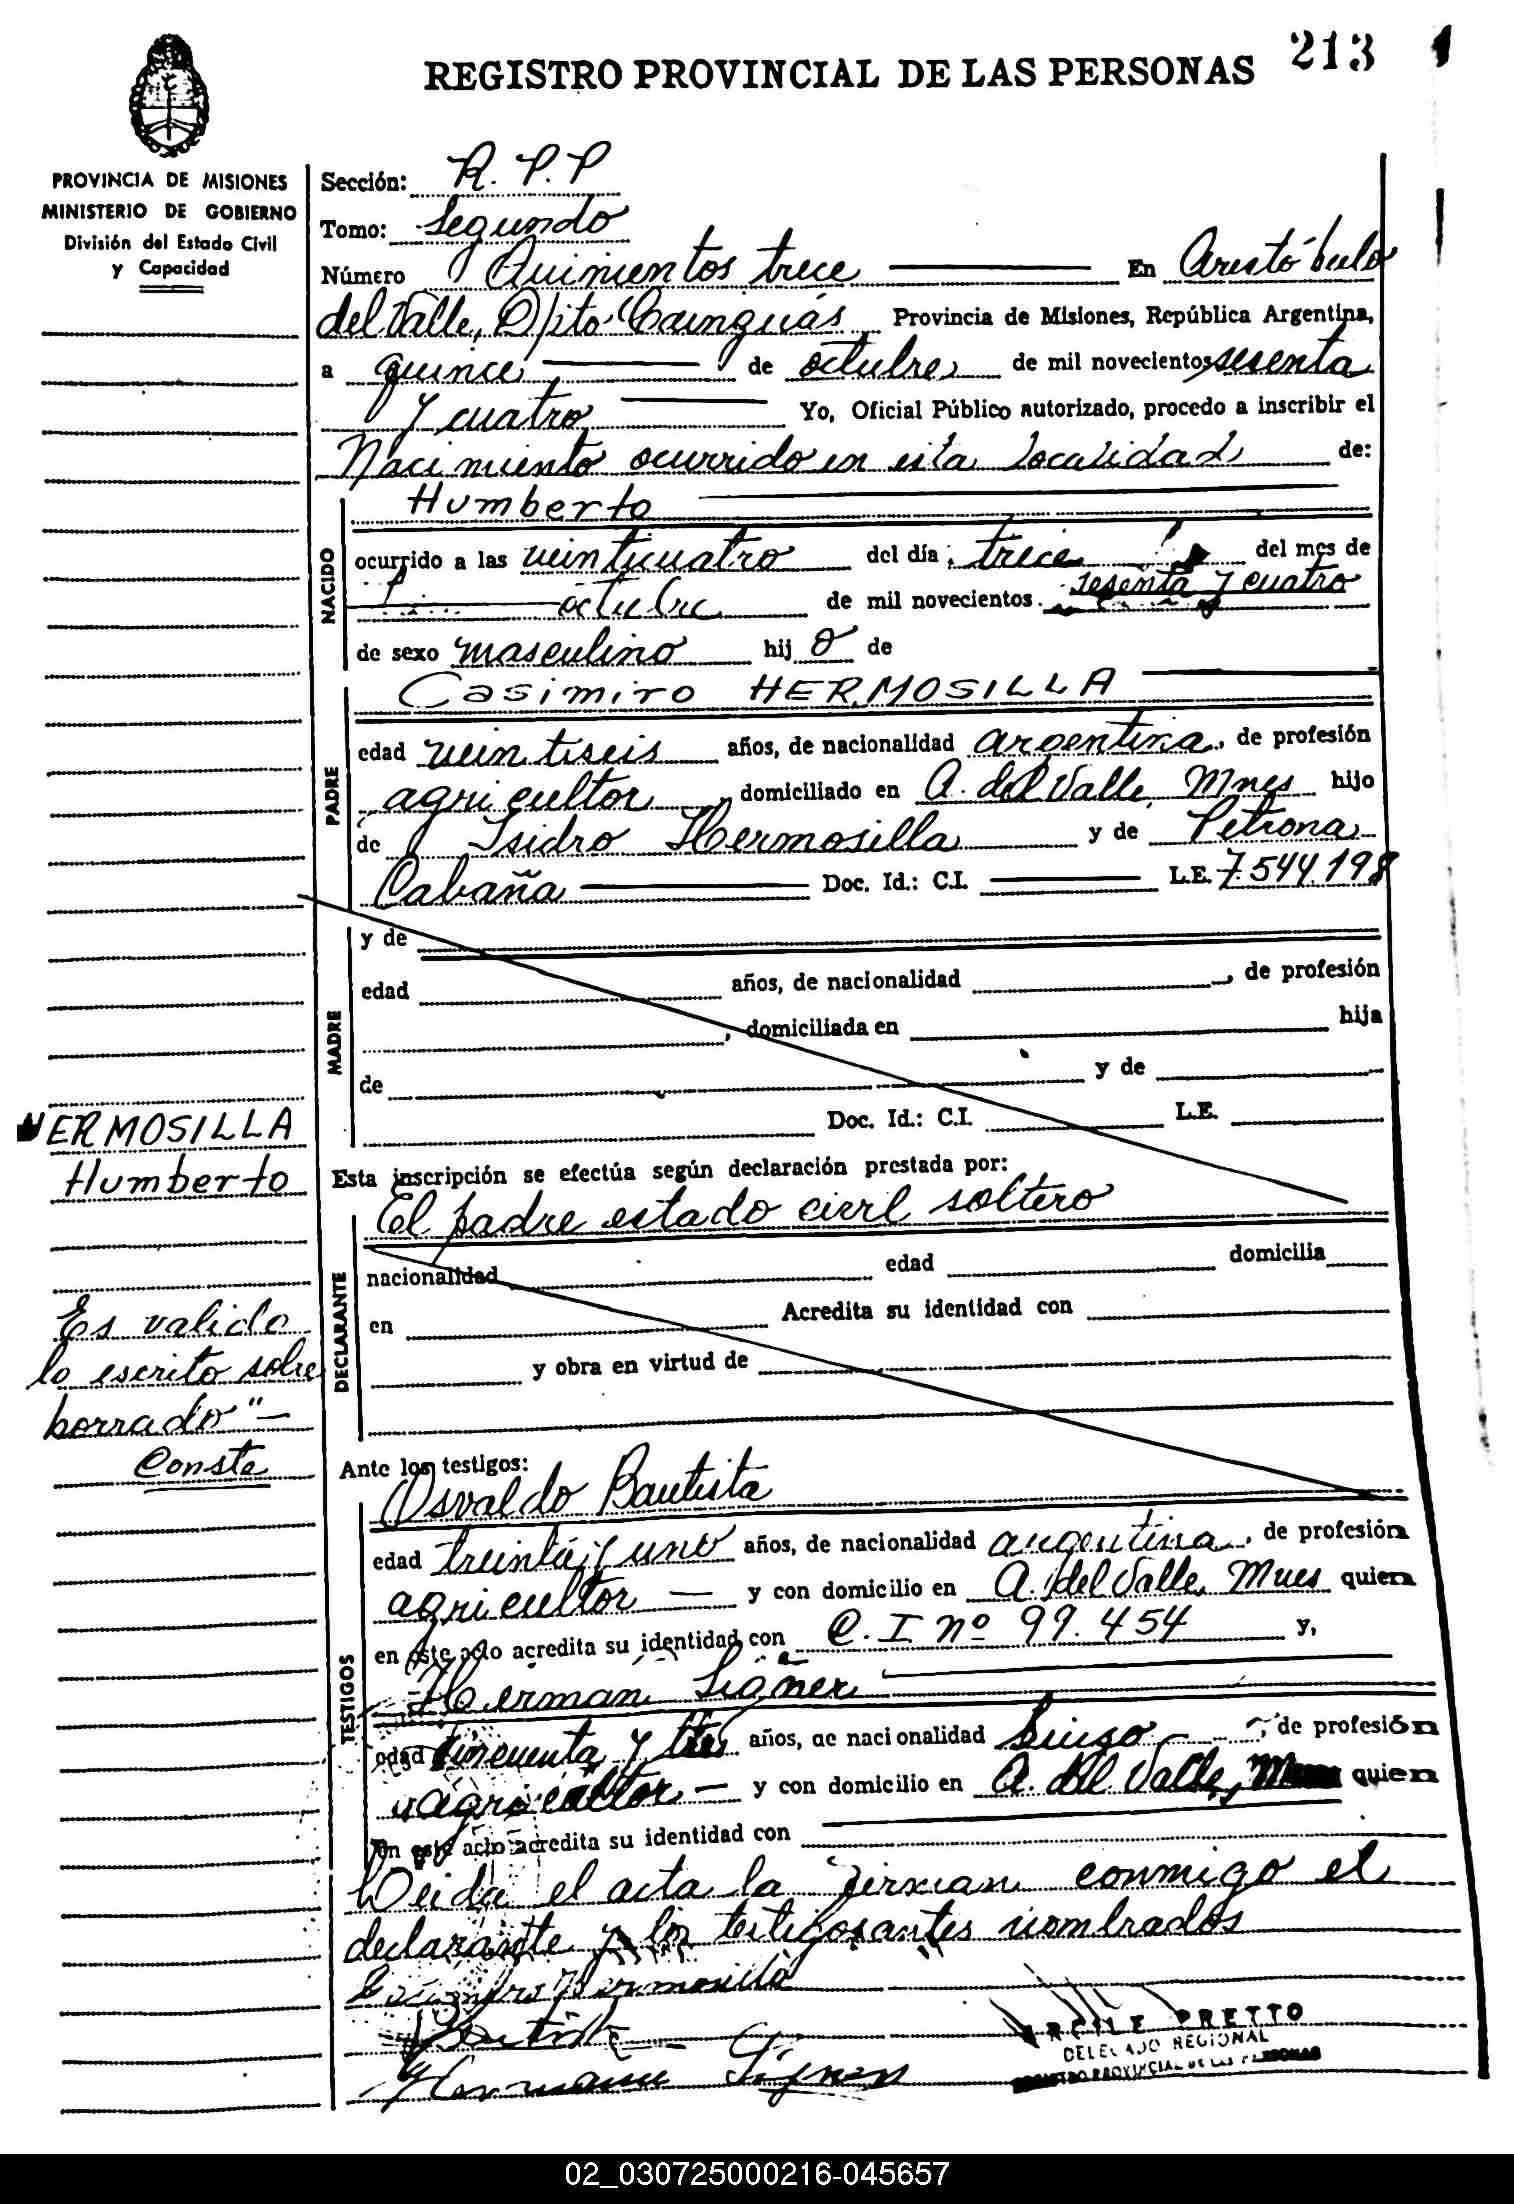 213
REGISTRO PROVINCIAL DE LAS PERSONAS
PROVINCIA DE MISIONES
MINISTERIO DE GOBIERNO
División del Estado Civil
y Capacidad
Sección: R. P. P
Tomo: Segundo
Número Quinientos trece En Aristóbulo
del Valle, Dpto Cainguás Provincia de Misiones, República Argentina,
a quince de octubre de mil novecientos sesenta
y cuatro Yo, Oficial Público autorizado, procedo a inscribir el
Nacimiento ocurrido en esta localidad de:
NACIDO
Humberto
ocurrido a las veinticuatro del día trece del mes de
octubre de mil novecientos sesenta y cuatro
de sexo masculino hij o de
PADRE
Casimiro HERMOSILLA
edad veintiseis años, de nacionalidad argentina, de profesión
agricultor, domiciliado en A. del Valle, Mnes hijo
de Isidro Hermosilla y de Petrona
Cabaña Doc. Id.: C.I. L.E. 7.544.198
MADRE
y de
edad años, de nacionalidad , de profesión
, domiciliada en hija
de y de
Doc. Id.: C.I. L.E.
HERMOSILLA
Humberto
Esta inscripción se efectúa según declaración prestada por:
DECLARANTE
El padre estado civil soltero
nacionalidad edad domicilia
en Acredita su identidad con
y obra en virtud de
Es valido
lo escrito sobre
borrado"—
Conste
Ante los testigos:
TESTIGOS
Osvaldo Bautista
edad treinta y uno años, de nacionalidad argentina, de profesión
agricultor — y con domicilio en A. del Valle, Mnes quien
en este acto acredita su identidad con C. I nº 99.454 y,
Herman Signer
edad cincuenta y tres años, de nacionalidad Suizo, de profesión
agricultor — y con domicilio en A. del Valle, Mnes quien
en este acto acredita su identidad con
Leida el acta la firman conmigo el
declarante y los testigos antes nombrados
Casimiro Hermosilla
Bautista
Hermann Signer
PRETTO
DELEGADO REGIONAL
REGISTRO PROVINCIAL DE LAS PERSONAS
02_030725000216-045657